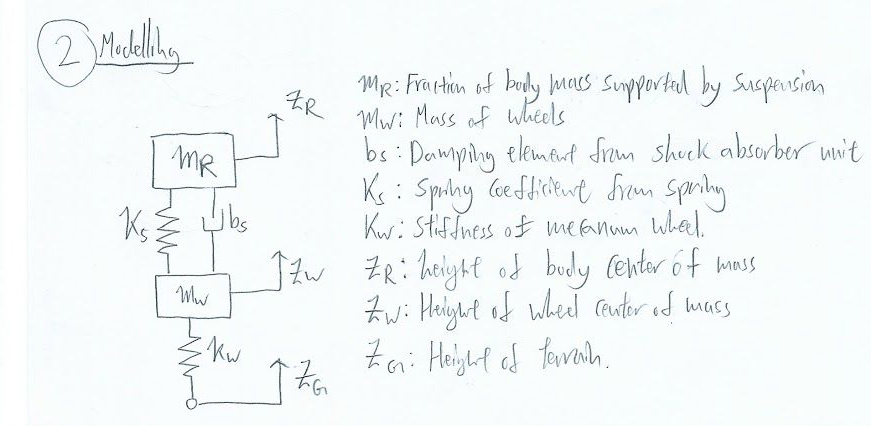 2 Modelling
MR: Fraction of body mass supported by suspension
Mw: Mass of wheels
bs: Damping element from shock absorber unit
Ks: Spring coefficient from spring
Kw: Stiffness of mecanum wheel.
ZR: height of body center of mass
Zw: Height of wheel center of mass
ZG: Height of terrain.
ZR
MR
Ks
bs
Zw
Mw
Kw
ZG